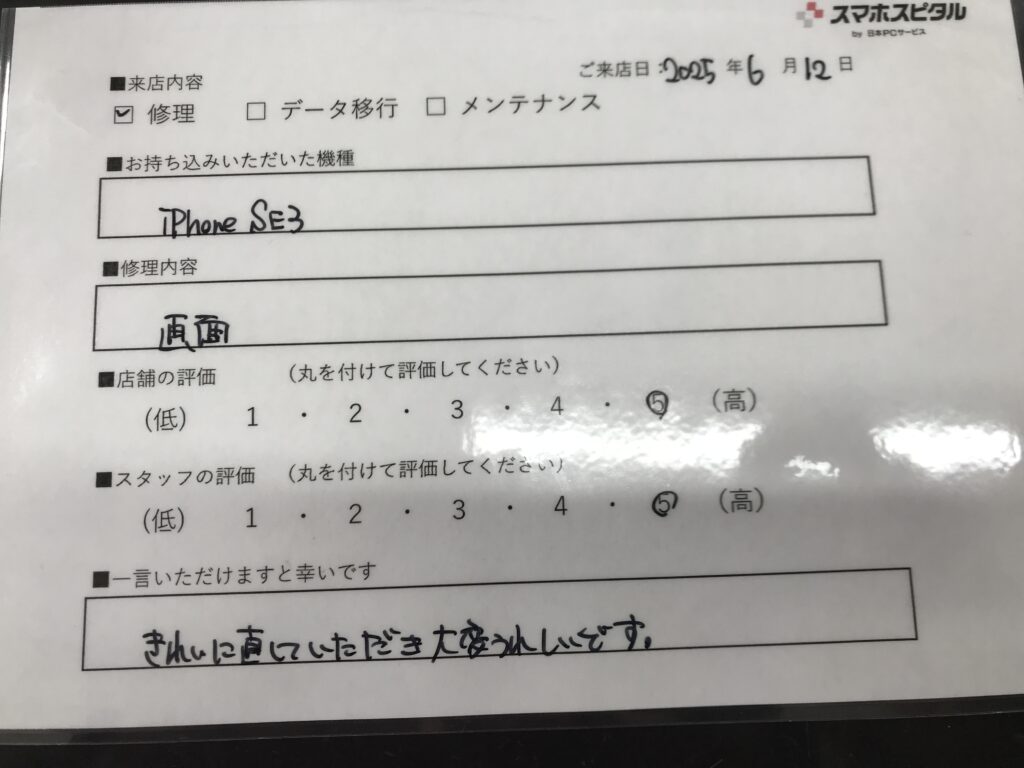 スマホスピタル
by 日本PCサービス
ご来店日:2025年6月12日
■来店内容
☑ 修理 □ データ移行 □ メンテナンス
■お持ち込みいただいた機種
iPhone SE3
■修理内容
画面
■店舗の評価 （丸を付けて評価してください）
（低） 1 ・ 2 ・ 3 ・ 4 ・ 5 （高）
■スタッフの評価 （丸を付けて評価してください）
（低） 1 ・ 2 ・ 3 ・ 4 ・ 5 （高）
■一言いただけますと幸いです
きれいに直していただき大変うれしいです。